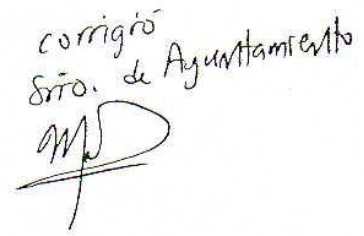 corrigió
Srio. de Ayuntamiento